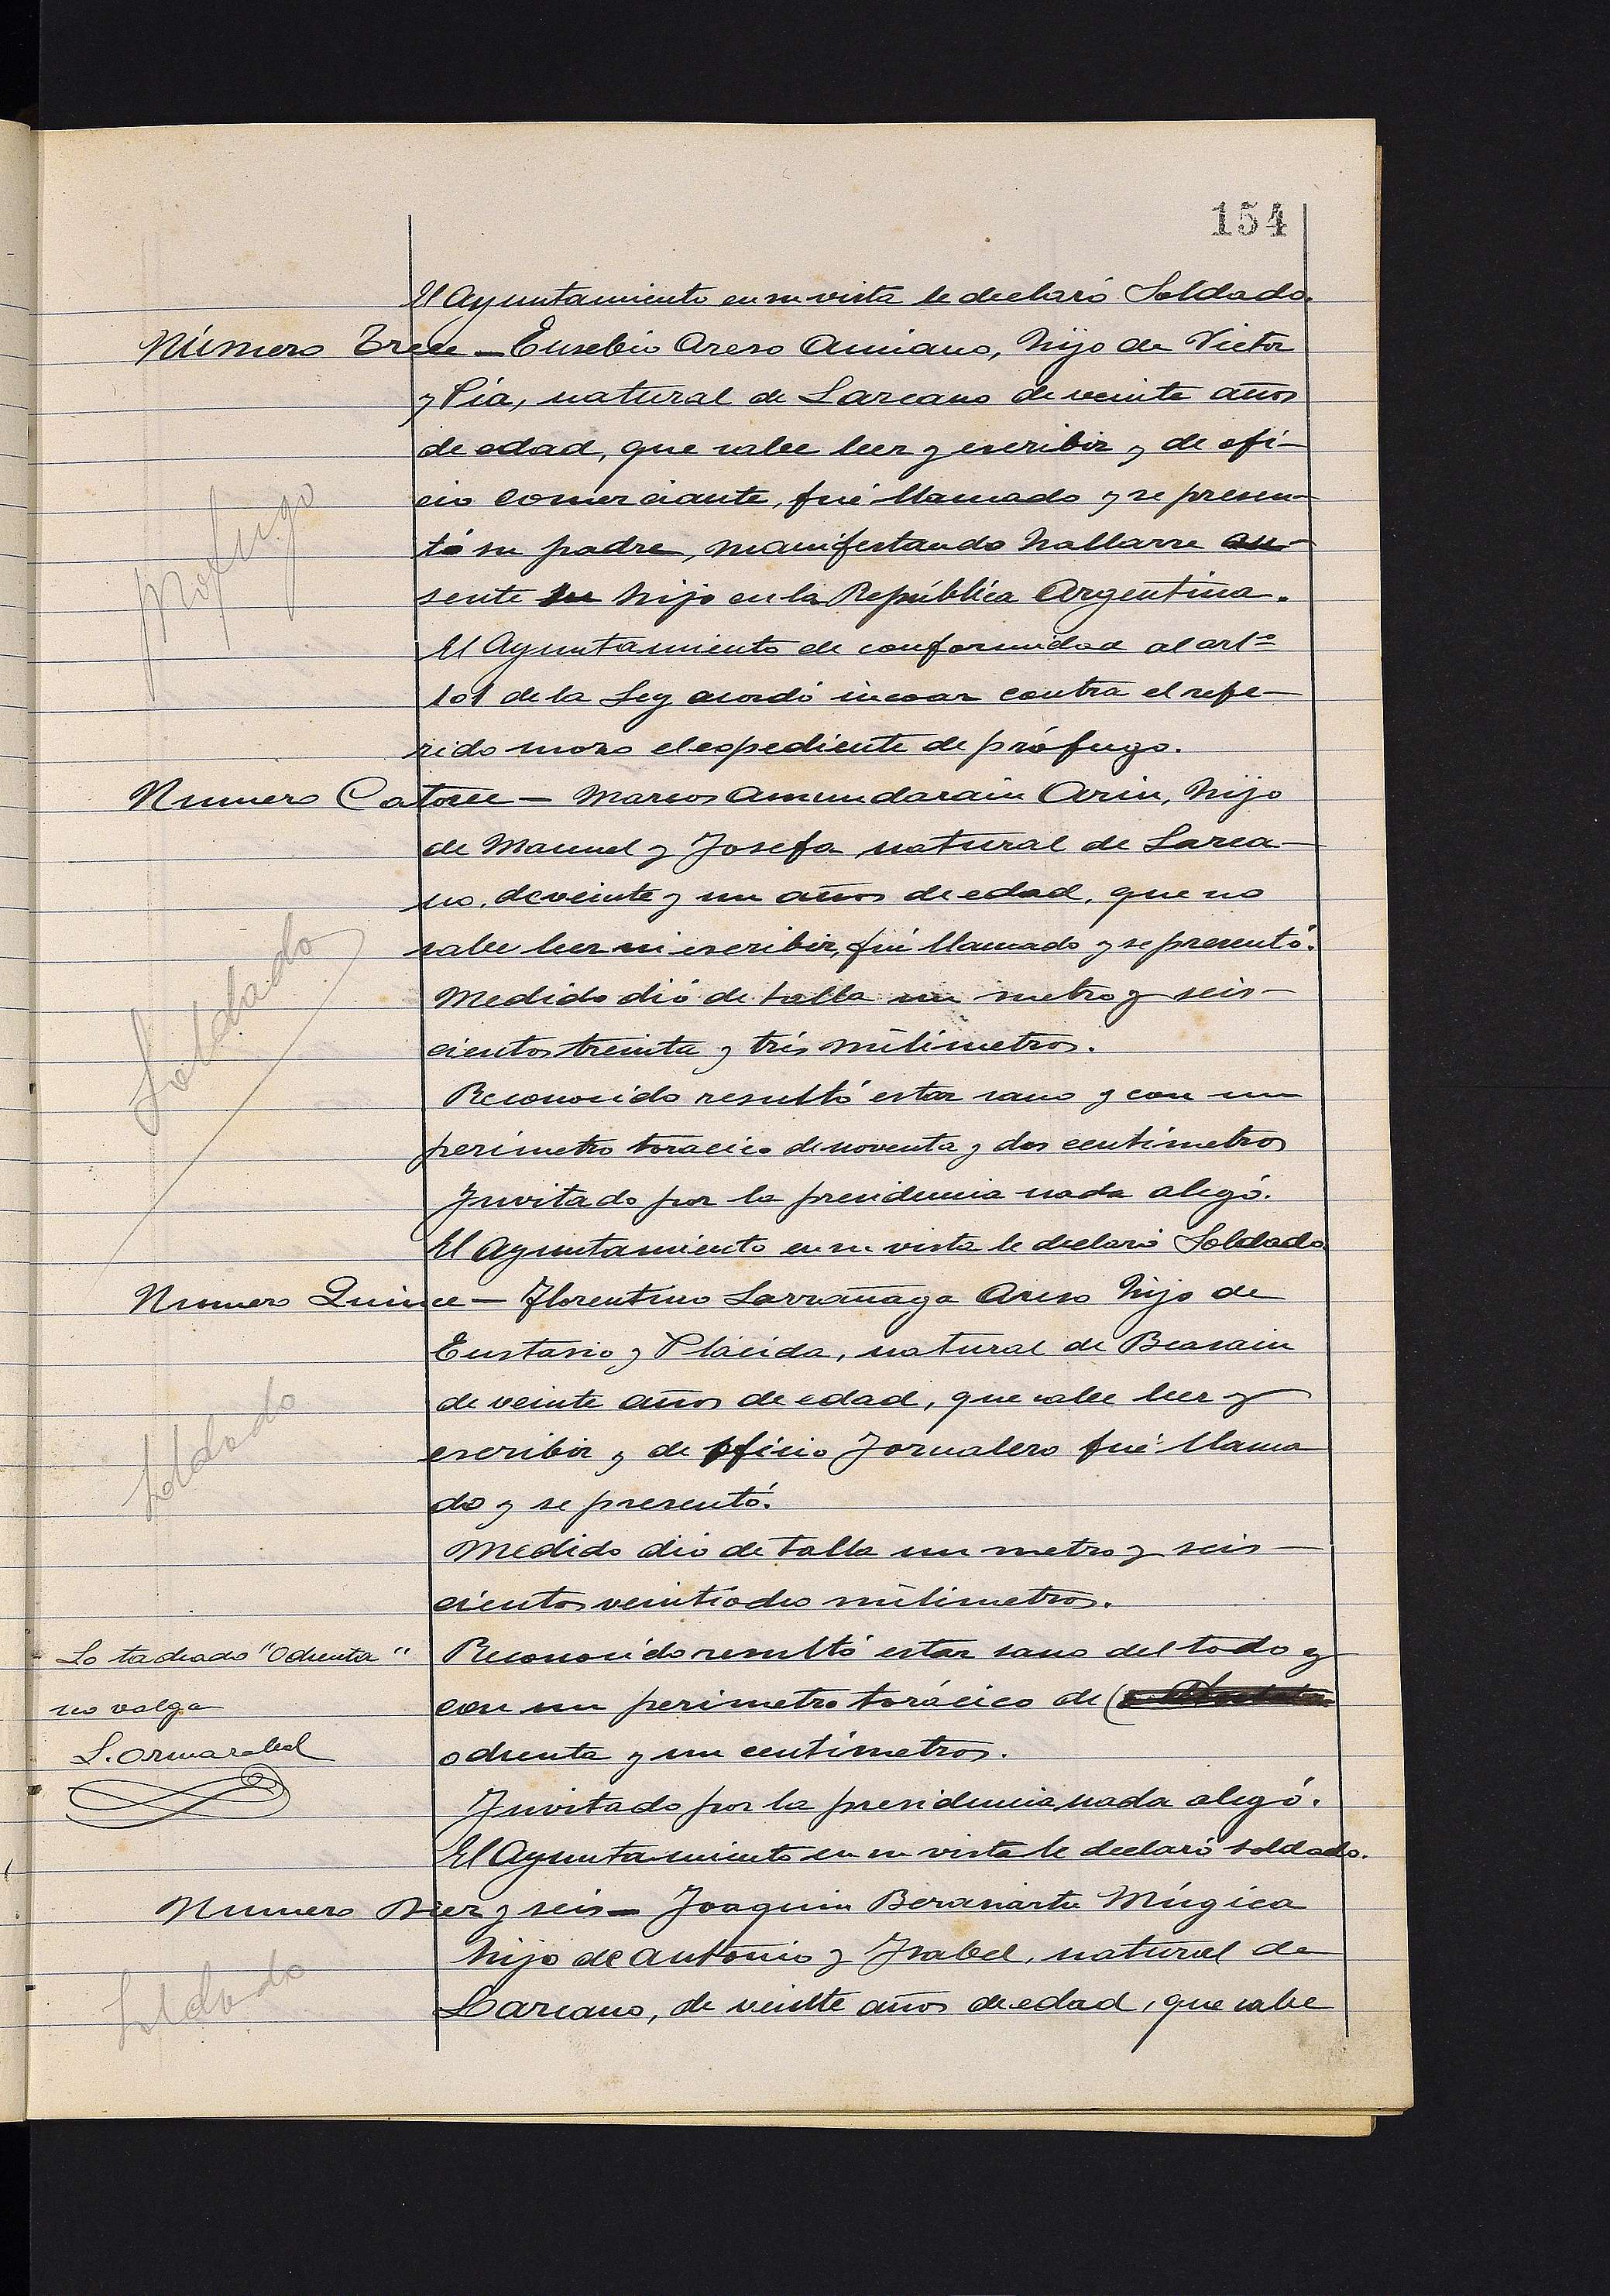 154
El Ayuntamiento en su vista le declaró Soldado.
Número Trece — Eusebio Areso Amiano, hijo de Victor
y Pía, natural de Lazcano de veinte años
de edad, que sabe leer y escribir y de ofi-
cio comerciante, fué llamado y se presen-
tó su padre, manifestando hallarse au-
sente su hijo en la República Argentina.
prófugo
El Ayuntamiento de conformidad al artº
101 de la Ley acordó incoar contra el refe-
rido mozo el espediente de prófugo.
Numero Catorce — Marcos Amundarain Arin, hijo
de Manuel y Josefa natural de Lazca-
no, de veinte y un años de edad, que no
sabe leer ni escribir, fué llamado y se presentó.
Soldado
Medido dió de talla un metro y seis-
cientos treinta y trés milimetros.
Reconocido resultó estar sano y con un
perímetro toracico de noventa y dos centímetros
Invitado por la presidencia nada alegó.
El Ayuntamiento en su vista le declaró Soldado
Numero Quince — Florentino Larrañaga Areso hijo de
Eustasio y Plácida, natural de Beasain
de veinte años de edad, que sabe leer y
Soldado
escribir y de oficio Jornalero fué llama
do y se presentó.
Medido dió de talla un metro y seis-
cientos veintiocho milimetros.
Lo tachado "Ochenta"
Reconocido resultó estar sano del todo y
no valga
con un perímetro torácico de (
L. Ormazabal
ochenta y un centímetros.
Invitado por la presidencia nada alegó.
El Ayuntamiento en su vista le declaró soldado.
Numero Diez y seis — Joaquin Berasiartu Múgica
hijo de Antonio y Isabel, natural de
Soldado
Lazcano, de veinte años de edad, que sabe